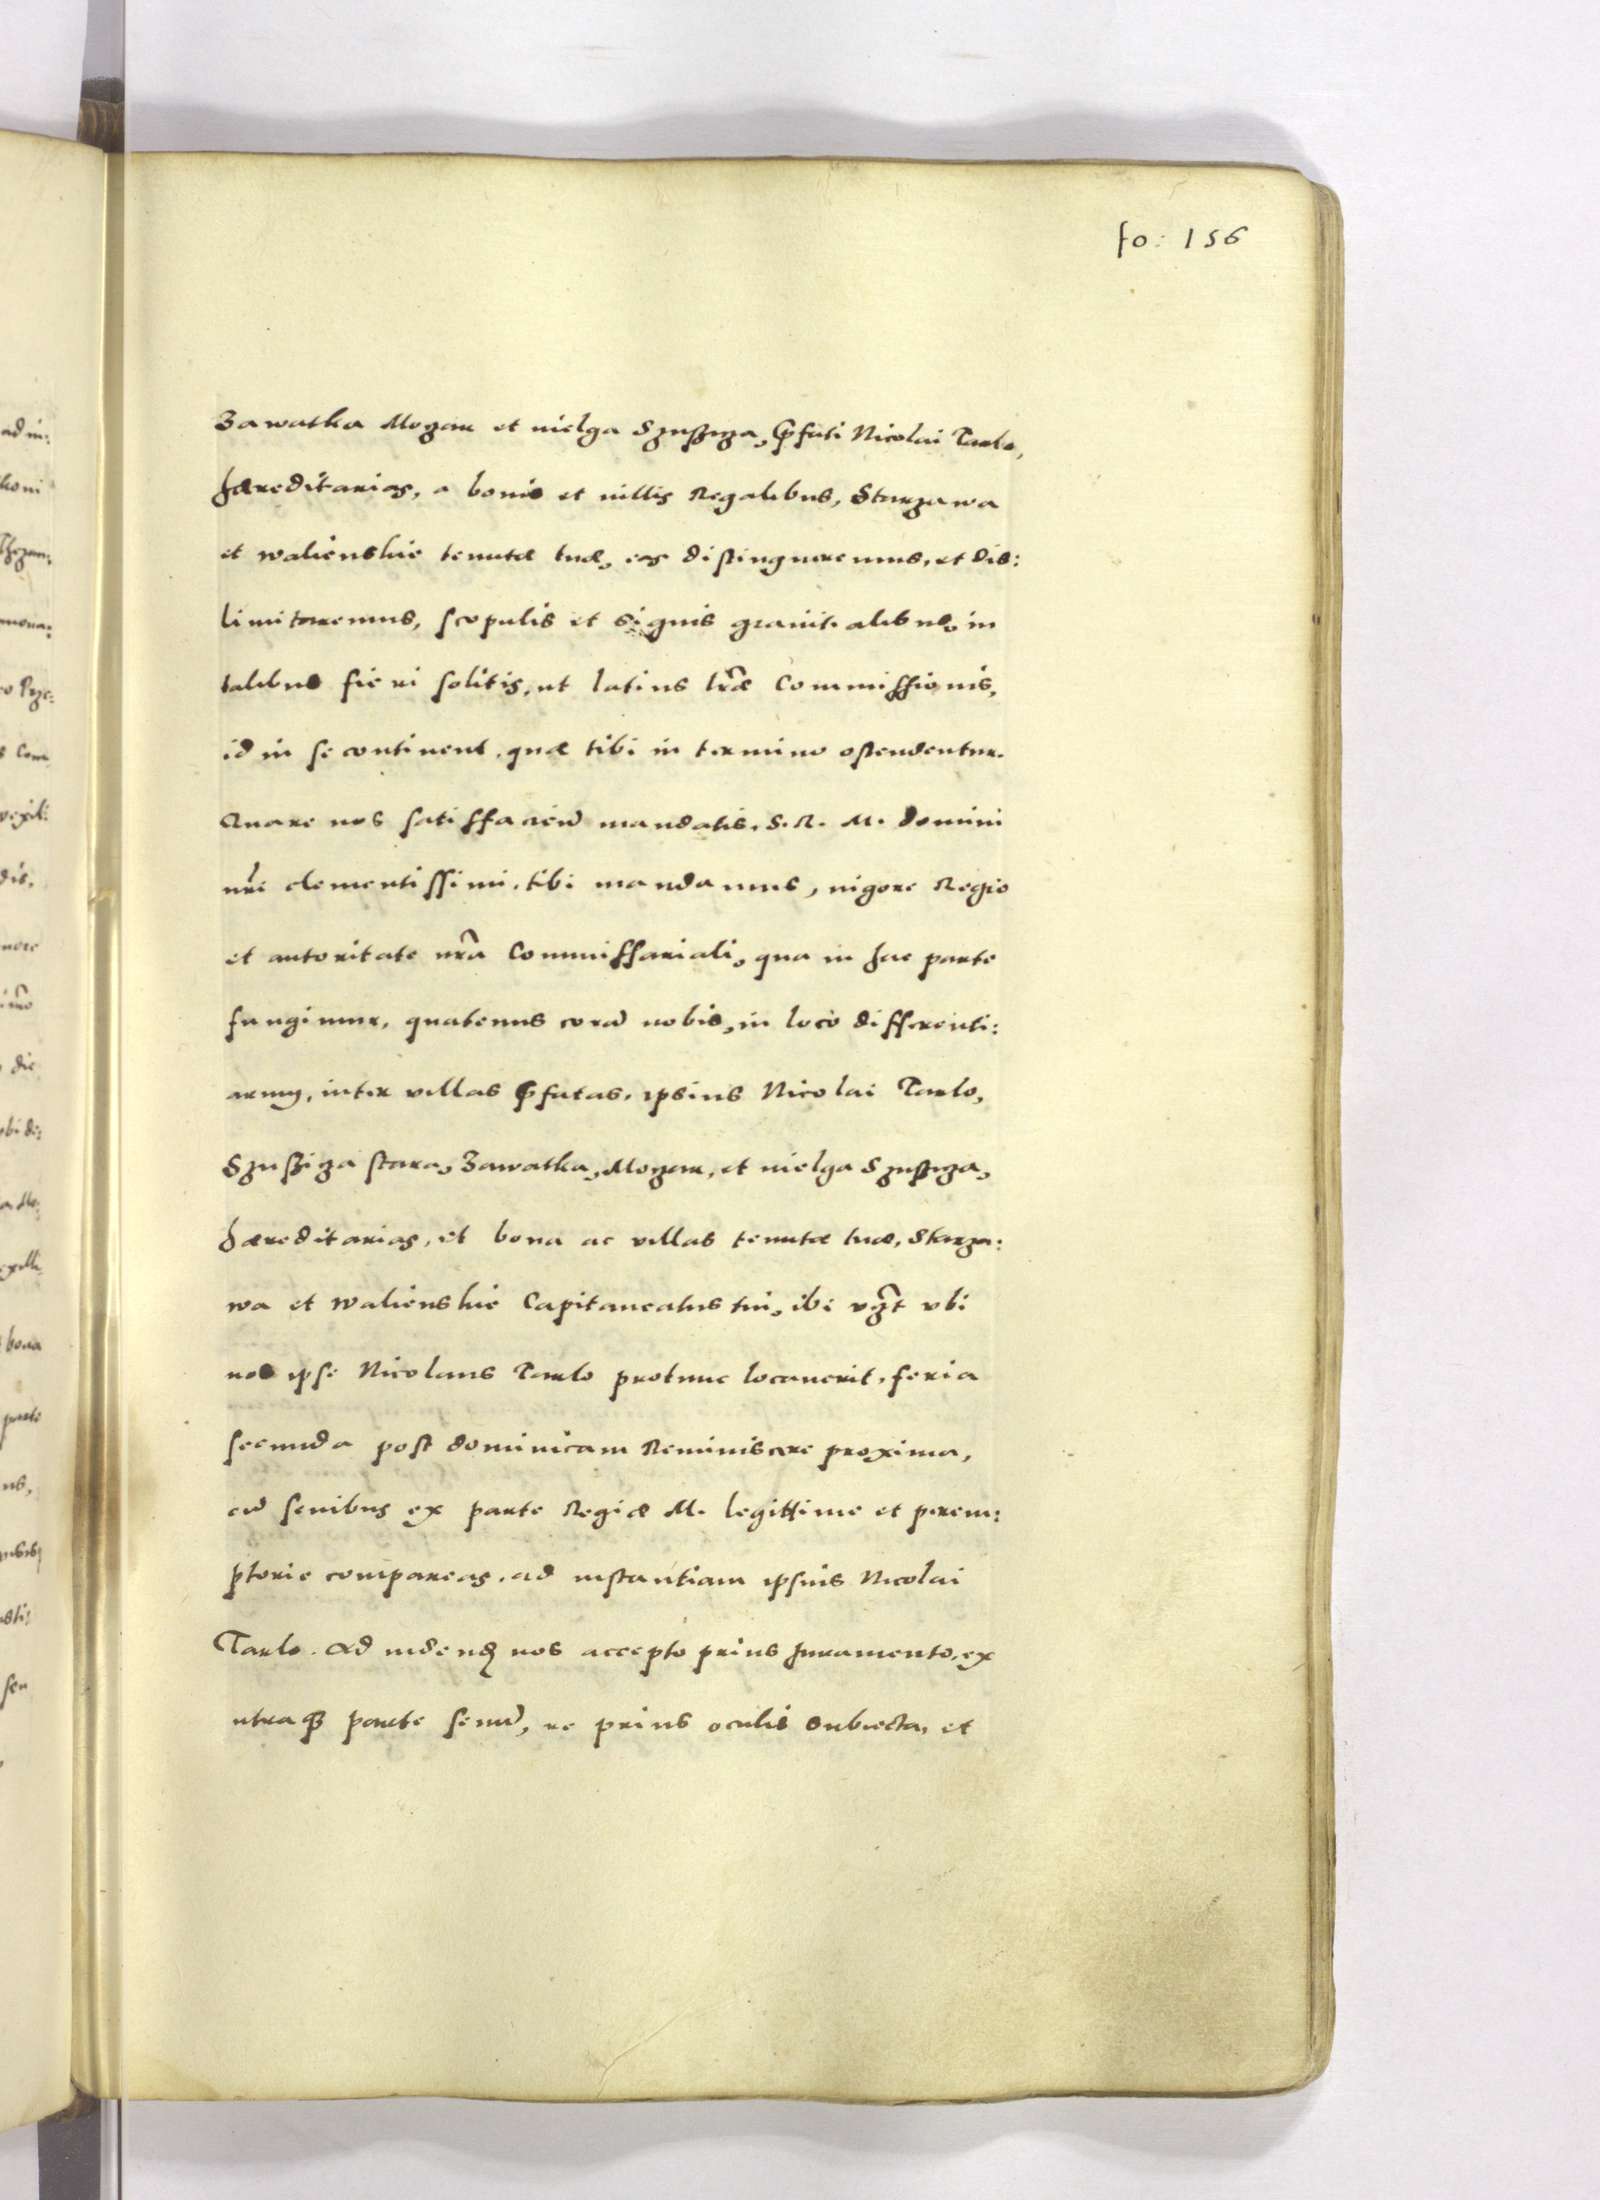 fo: 156
Zawatka Mozar et uielga Szusziza, p̃fati Nicolai Tarlo,
hæreditarias, a bonis et uillis Regalibus, Starzawa
et walienskie tenutæ tuæ, eas distingueremus, et dis:
limitaremus, scopulis et signis granitialibus, in
talibus fieri solitis, ut latius lr̃æ Commissionis,
id in se continent, quæ tibi in termino ostendentur.
Quare nos satisffacien̄ mandatis. S. R. M. domini
nr̃i clementissimi, tibi mandamus, uigore Regio
et autoritate nr̃a Commissariali, qua in hac parte
fungimur, quatenus corā nobis, in loco differenti:
arum, inter villas p̃fatas, ipsius Nicolai Tarlo,
Szusziza stara, Zawatka, Mozar, et uielga Szusziza,
hæreditarias, et bona ac villas tenutæ tuæ, Starza:
wa et walienskie Capitaneatus tui, ibi vzt̃ vbi
nos ipse Nicolaus Tarlo protunc locauerit, feria
secunda post dominicam Reminiscere proxima,
cū senibus ex parte Regiæ M. legittime et perem:
ptorie compareas, ad instantiam ipsius Nicolai
Tarlo. Ad uidend̄ nos accepto prius Juramento, ex
utraqꝫ parte senū, re prius oculis subiecta, et